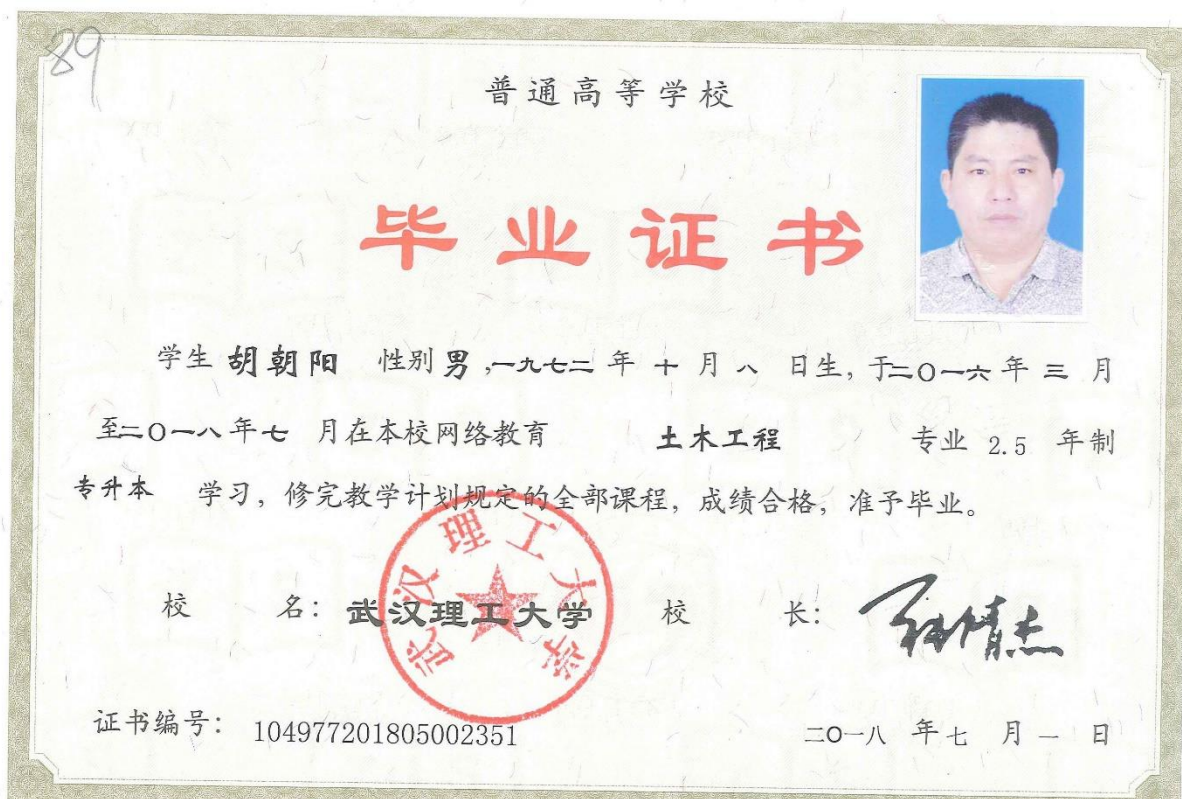 89
普通高等学校
毕业证书
学生 胡朝阳 性别 男,一九七二 年 十 月 八 日生, 于二O一六 年 三 月
至二O一八 年 七 月在本校网络教育 土木工程 专业 2.5 年制
专升本 学习, 修完教学计划规定的全部课程, 成绩合格, 准予毕业。
武汉理工大学
校 名: 武汉理工大学 校 长:
证书编号: 104977201805002351 二O一八 年 七 月 一 日